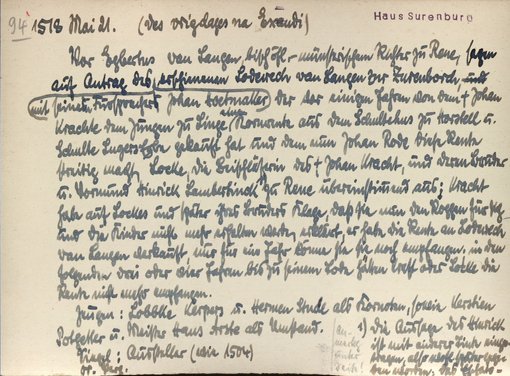 94 1518 Mai 21. (des vrigdages na Exaudi) Haus Surenburg
Vor Egbertus van Langen, bischöfl.-münsterischem Richter zu Rene, sagen
auf Antrag des erschienenen Lodewech van Langen zur Surenborch, und
mit seinem Fürsprecher Johan der vor einigen Jahren von dem † Johan
Kracht dem Jungen zu Linge eine Kornrente aus dem Schultehus zu u.
Schulte Erbe gekauft hat und dem nun Johan Rode diese Rente
streitig macht, Locke, die Beischläferin des † Johan Kracht, und deren Bruder
u. Vormund Hinrick Lamberdinck zu Rene übereinstimmend aus: Kracht
habe auf Lockes und später ihres Bruders Klage, daß sie nun den Roggen für sich
und die Kinder nicht mehr erhalten werde, erklärt, er habe die Rente an Lodewech
van Langen verkauft, nur für ein Jahr könne sie sie noch empfangen, in den
folgenden drei oder vier Jahren bis zu seinem Tode hätten Kracht oder Locke die
Rente nicht mehr empfangen.
Zeugen: Lobbke u. Hermen Stude als Kornoten, sowie Kerstien
u. Meister Hans als Umstand.
Siegel: Aussteller (wie 1504)
Or. Perg.
1) Die Aussage des Hinrick
ist mit anderer Tinte einge-
tragen, also wohl später gege-
ben worden,